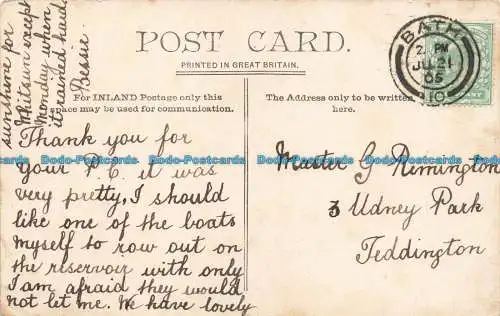 POST CARD.
PRINTED IN GREAT BRITAIN.
For INLAND Postage only this
space may be used for communication.
The Address only to be written
here.
BATH
2 PM
JU 21
05
Thank you for
your P.C. it was
very pretty, I should
like one of the boats
myself to row out on
the reservoir with only
I am afraid they would
not let me. We have lovely
sunshine for
Whitsun except
Monday when
it rained hard.
Bessie
Master G Remington
3 Udney Park
Teddington
Dodo-Postcards Dodo-Postcards Dodo-Postcards Dodo-Postcards Dodo-Postcards